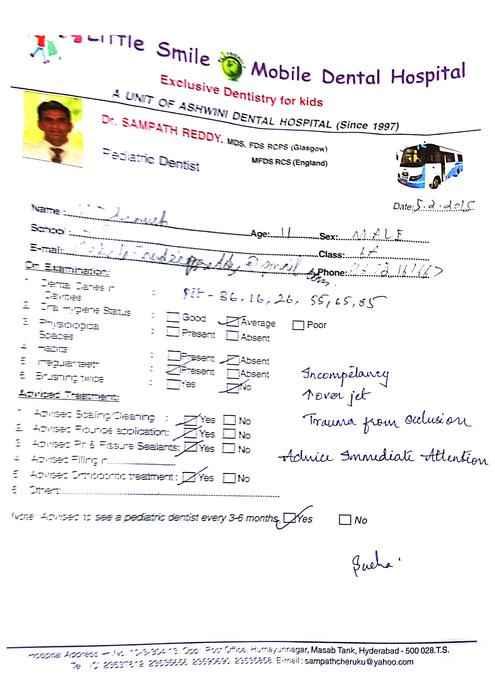 Little Smile Mobile Dental Hospital
Exclusive Dentistry for kids
A UNIT OF ASHWINI DENTAL HOSPITAL (Since 1997)
Dr. SAMPATH REDDY, MDS, FDS RCPS (Glasgow)
Pediatric Dentist MFDS RCS (England)
Date: 5.2.2015
Name :
Age: 11 Sex: MALE
School : Class:
E-mail: Phone:
On Examination:
1 Dental Caries in Cavities : 36, 16, 26, 55, 65, 85
2 Oral Hygiene Status : Good Average Poor
3 Physiological Spaces : Present Absent
4 Habits : Present Absent
5 Irregular teeth : Present Absent
6 Brushing twice : Yes No
Incompetancy
↑ over jet
Trauma from occlusion
Advice Immediate Attention
Advised Treatment:
1 Advised Scaling/Cleaning : Yes No
2 Advised Flouride application: Yes No
3 Advised Pit & Fissure Sealants: Yes No
4 Advised Filling in
5 Advised Orthodontic treatment : Yes No
6 Others:
Note: Advised to see a pediatric dentist every 3-6 months Yes No
Hospital Address : Opp. Post Office, Humayunnagar, Masab Tank, Hyderabad - 500 028.T.S.
E-mail : sampathcheruku@yahoo.com